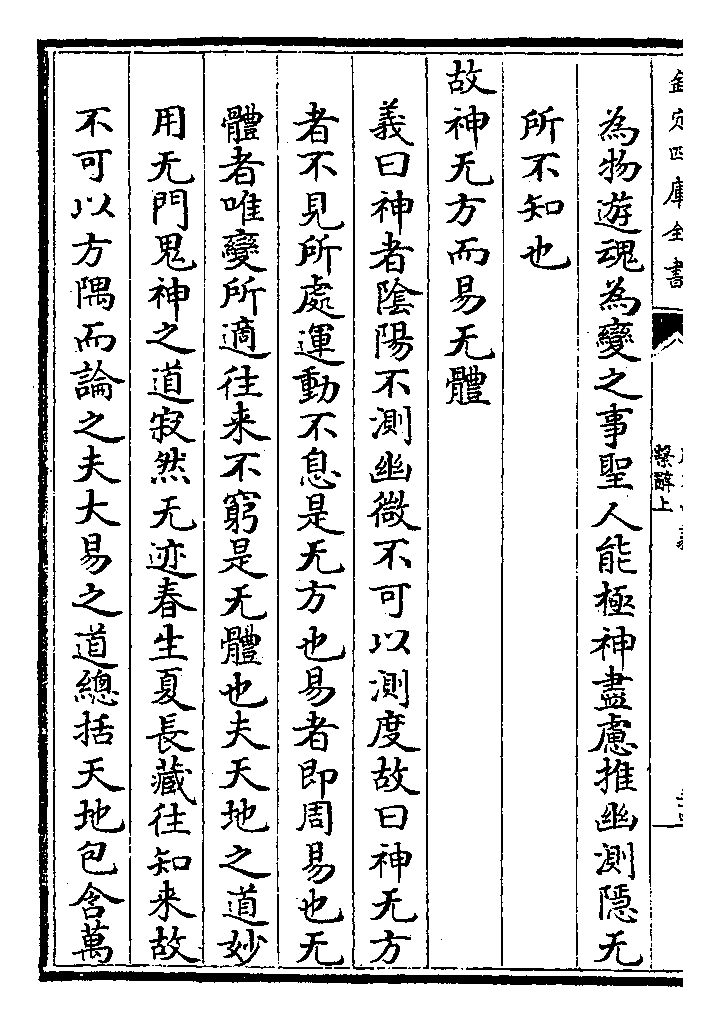 欽定四庫全書
繫辭上
為物遊魂為變之事聖人能極神盡慮推幽測隱无
所不知也
故神无方而易无體
義曰神者陰陽不測幽微不可以測度故曰神无方
者不見所處運動不息是无方也易者即周易也无
體者唯變所適往来不窮是无體也夫天地之道妙
用无門鬼神之道寂然无迹春生夏長藏往知来故
不可以方隅而論之夫大易之道總括天地包含萬